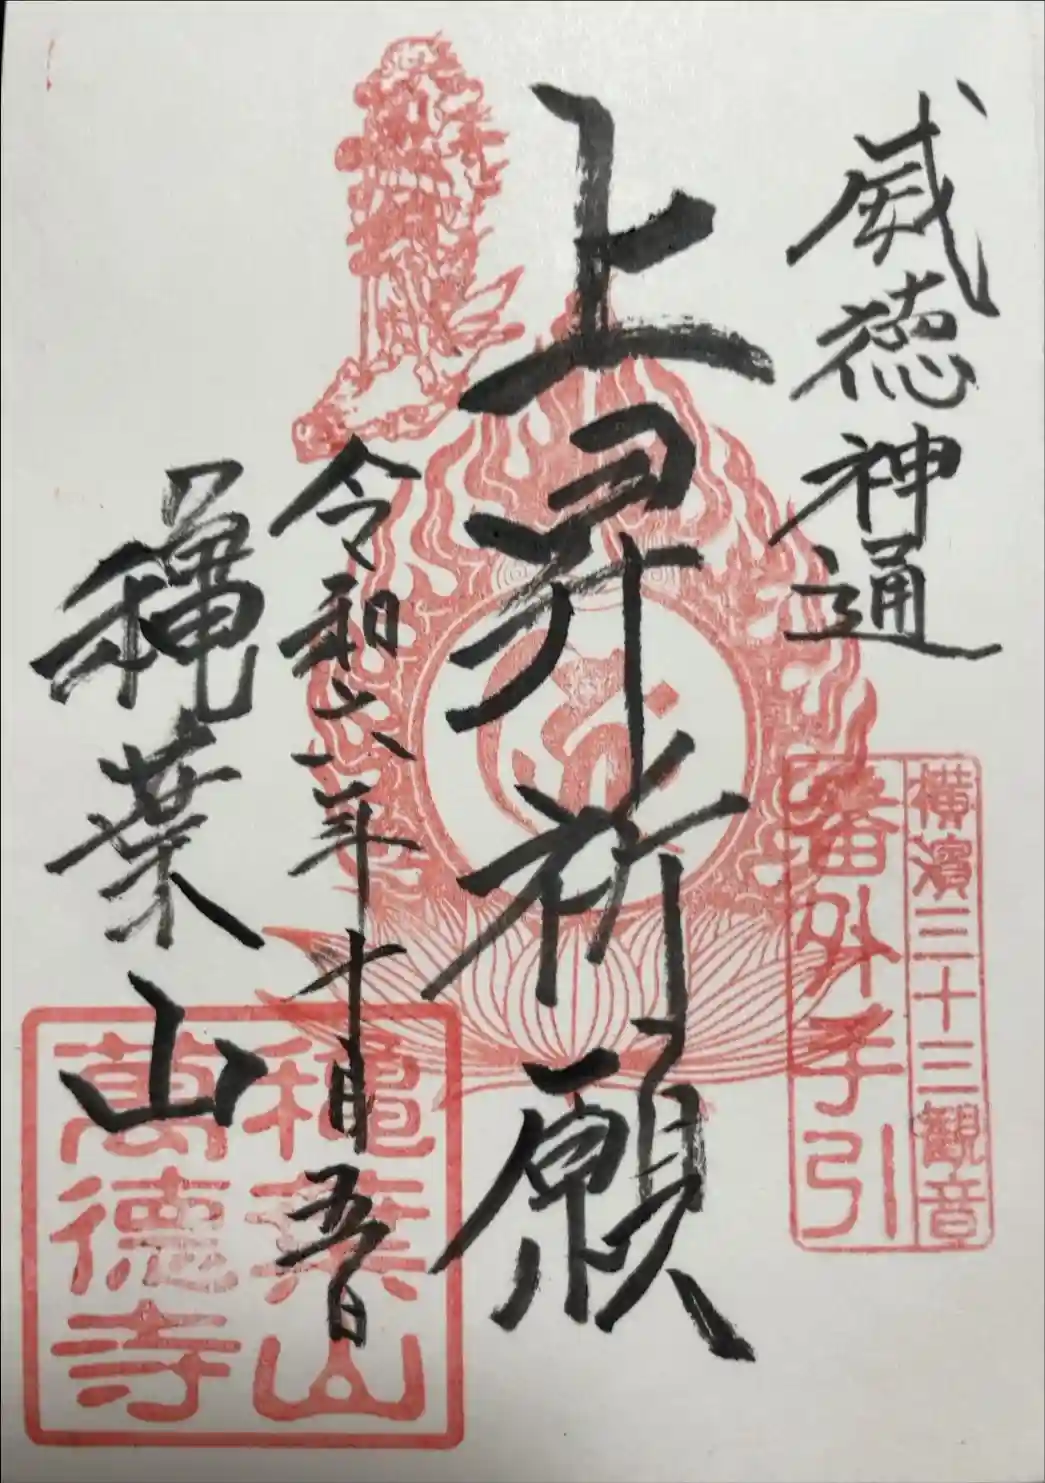 威徳神通
横濱三十三観音
番外手引
上昇祈願
令和六年十月五日
穐葉山
穐葉山
萬徳寺